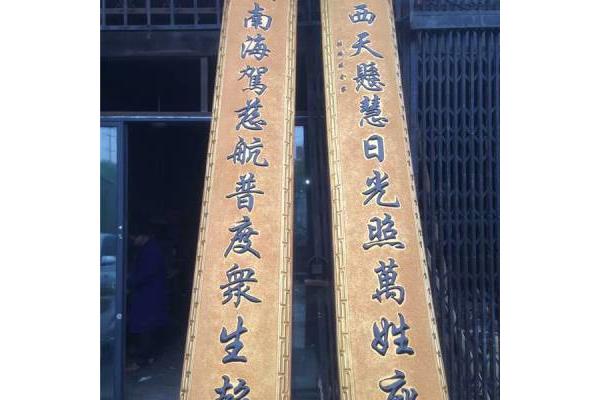 西天懸慧日光照萬姓
南海駕慈航普度衆生